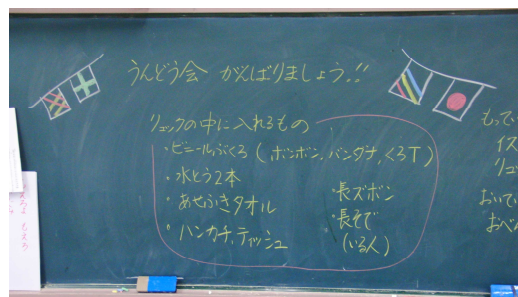 うんどう会 がんばりましょう!!
リュックの中に入れるもの
・ビニールぶくろ(ボンボン、バンダナ、くろT)
・水とう2本
・あせふきタオル
・ハンカチ、ティッシュ
・長ズボン
・長そで
(いる人)
もってい
イス
リュッ
おいてい
おべん